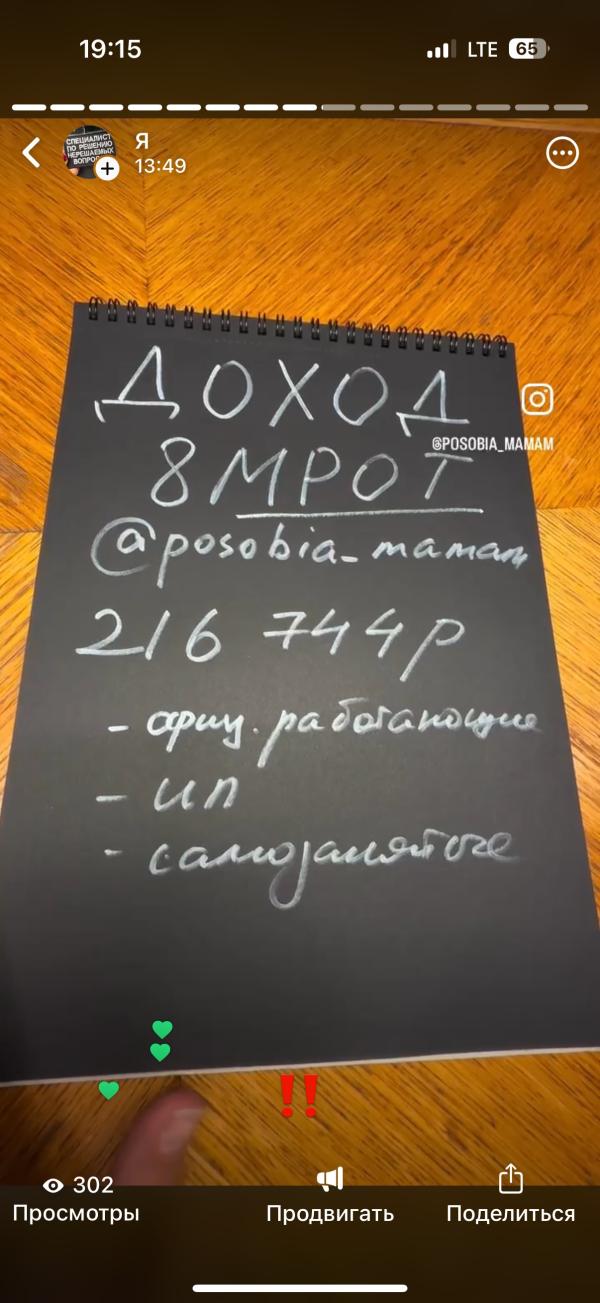 19:15 LTE 65
СПЕЦИАЛИСТ
ПО РЕШЕНИЮ
НЕРЕШАЕМЫХ
Я
13:49
ДОХОД
@POSOBIA_MAMAM
8 МРОТ
@posobia_mamam
216 744р
- офиц. работающие
- ип
- самозанятые
‼️
302
Просмотры
Продвигать
Поделиться